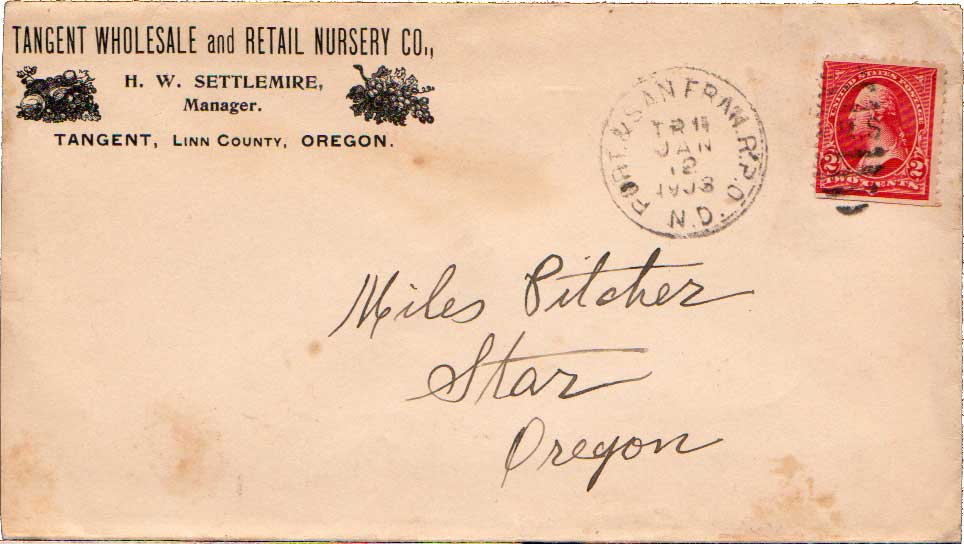 TANGENT WHOLESALE and RETAIL NURSERY CO.,
H. W. SETTLEMIRE,
Manager.
TANGENT, LINN COUNTY, OREGON.
PORT. & SAN FRAN. R.P.O.
TR 11
JAN
12
1903
N.D.
UNITED STATES POSTAGE
2 2
TWO CENTS
Miles Pitcher
Star
Oregon